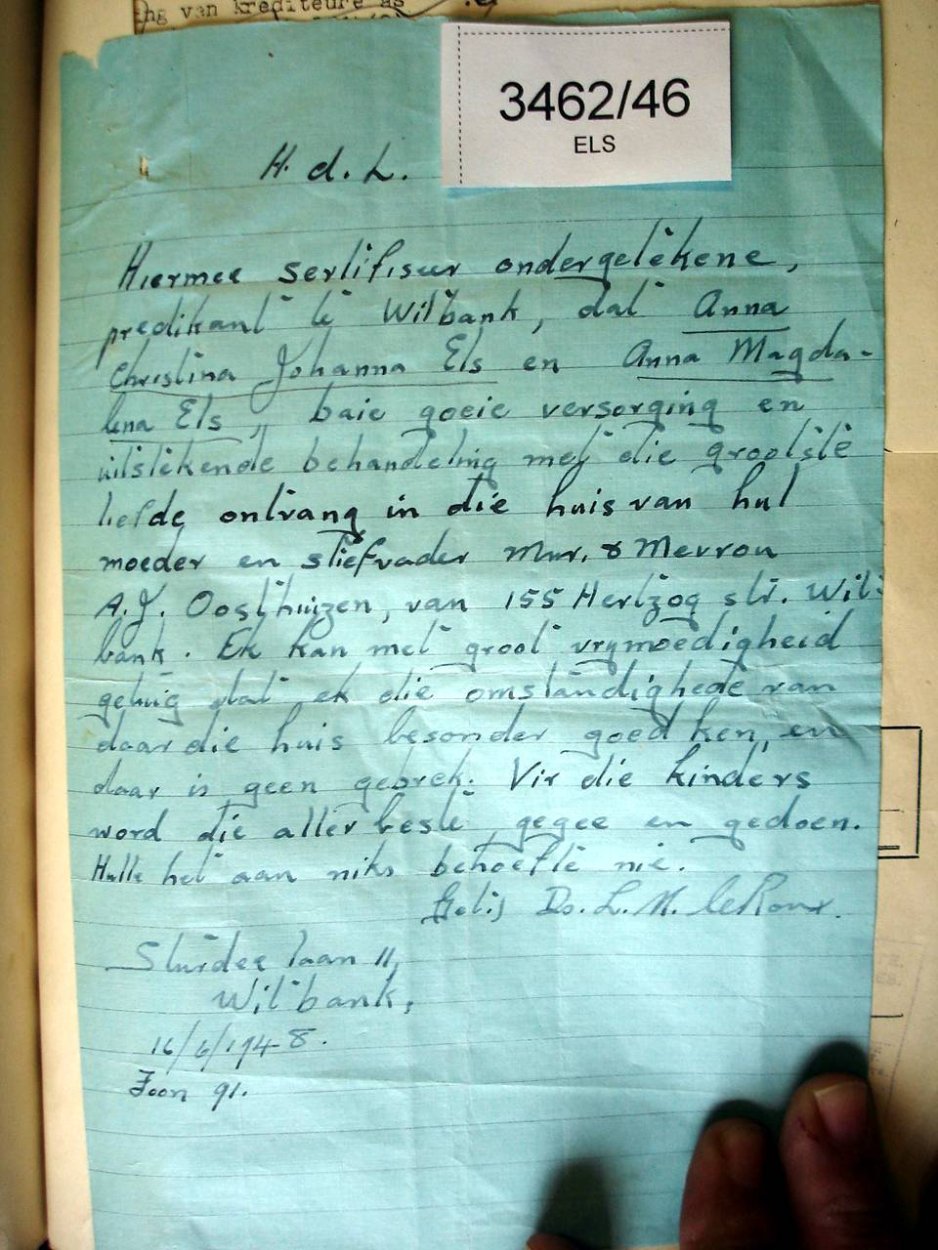 ng van krediteure as
3462/46
ELS
H. d. L.
Hiermee sertifiseer ondergetekene,
predikant te Witbank, dat Anna
Christina Johanna Els en Anna Magda-
lena Els, baie goeie versorging en
uitstekende behandeling met die grootste
liefde ontvang in die huis van hul
moeder en stiefvader Mnr. & Mevrou
A.J. Oosthuizen, van 155 Hertzog str. Wit-
bank. Ek kan met groot vrymoedigheid
getuig dat ek die omstandighede van
daardie huis besonder goed ken, en
daar is geen gebrek. Vir die kinders
word die allerbeste gegee en gedoen.
Hulle het aan niks behoefte nie.
Ds. L. M. le Roux.
Sturdee laan 11,
Witbank,
16/6/1948.
Foon 91.